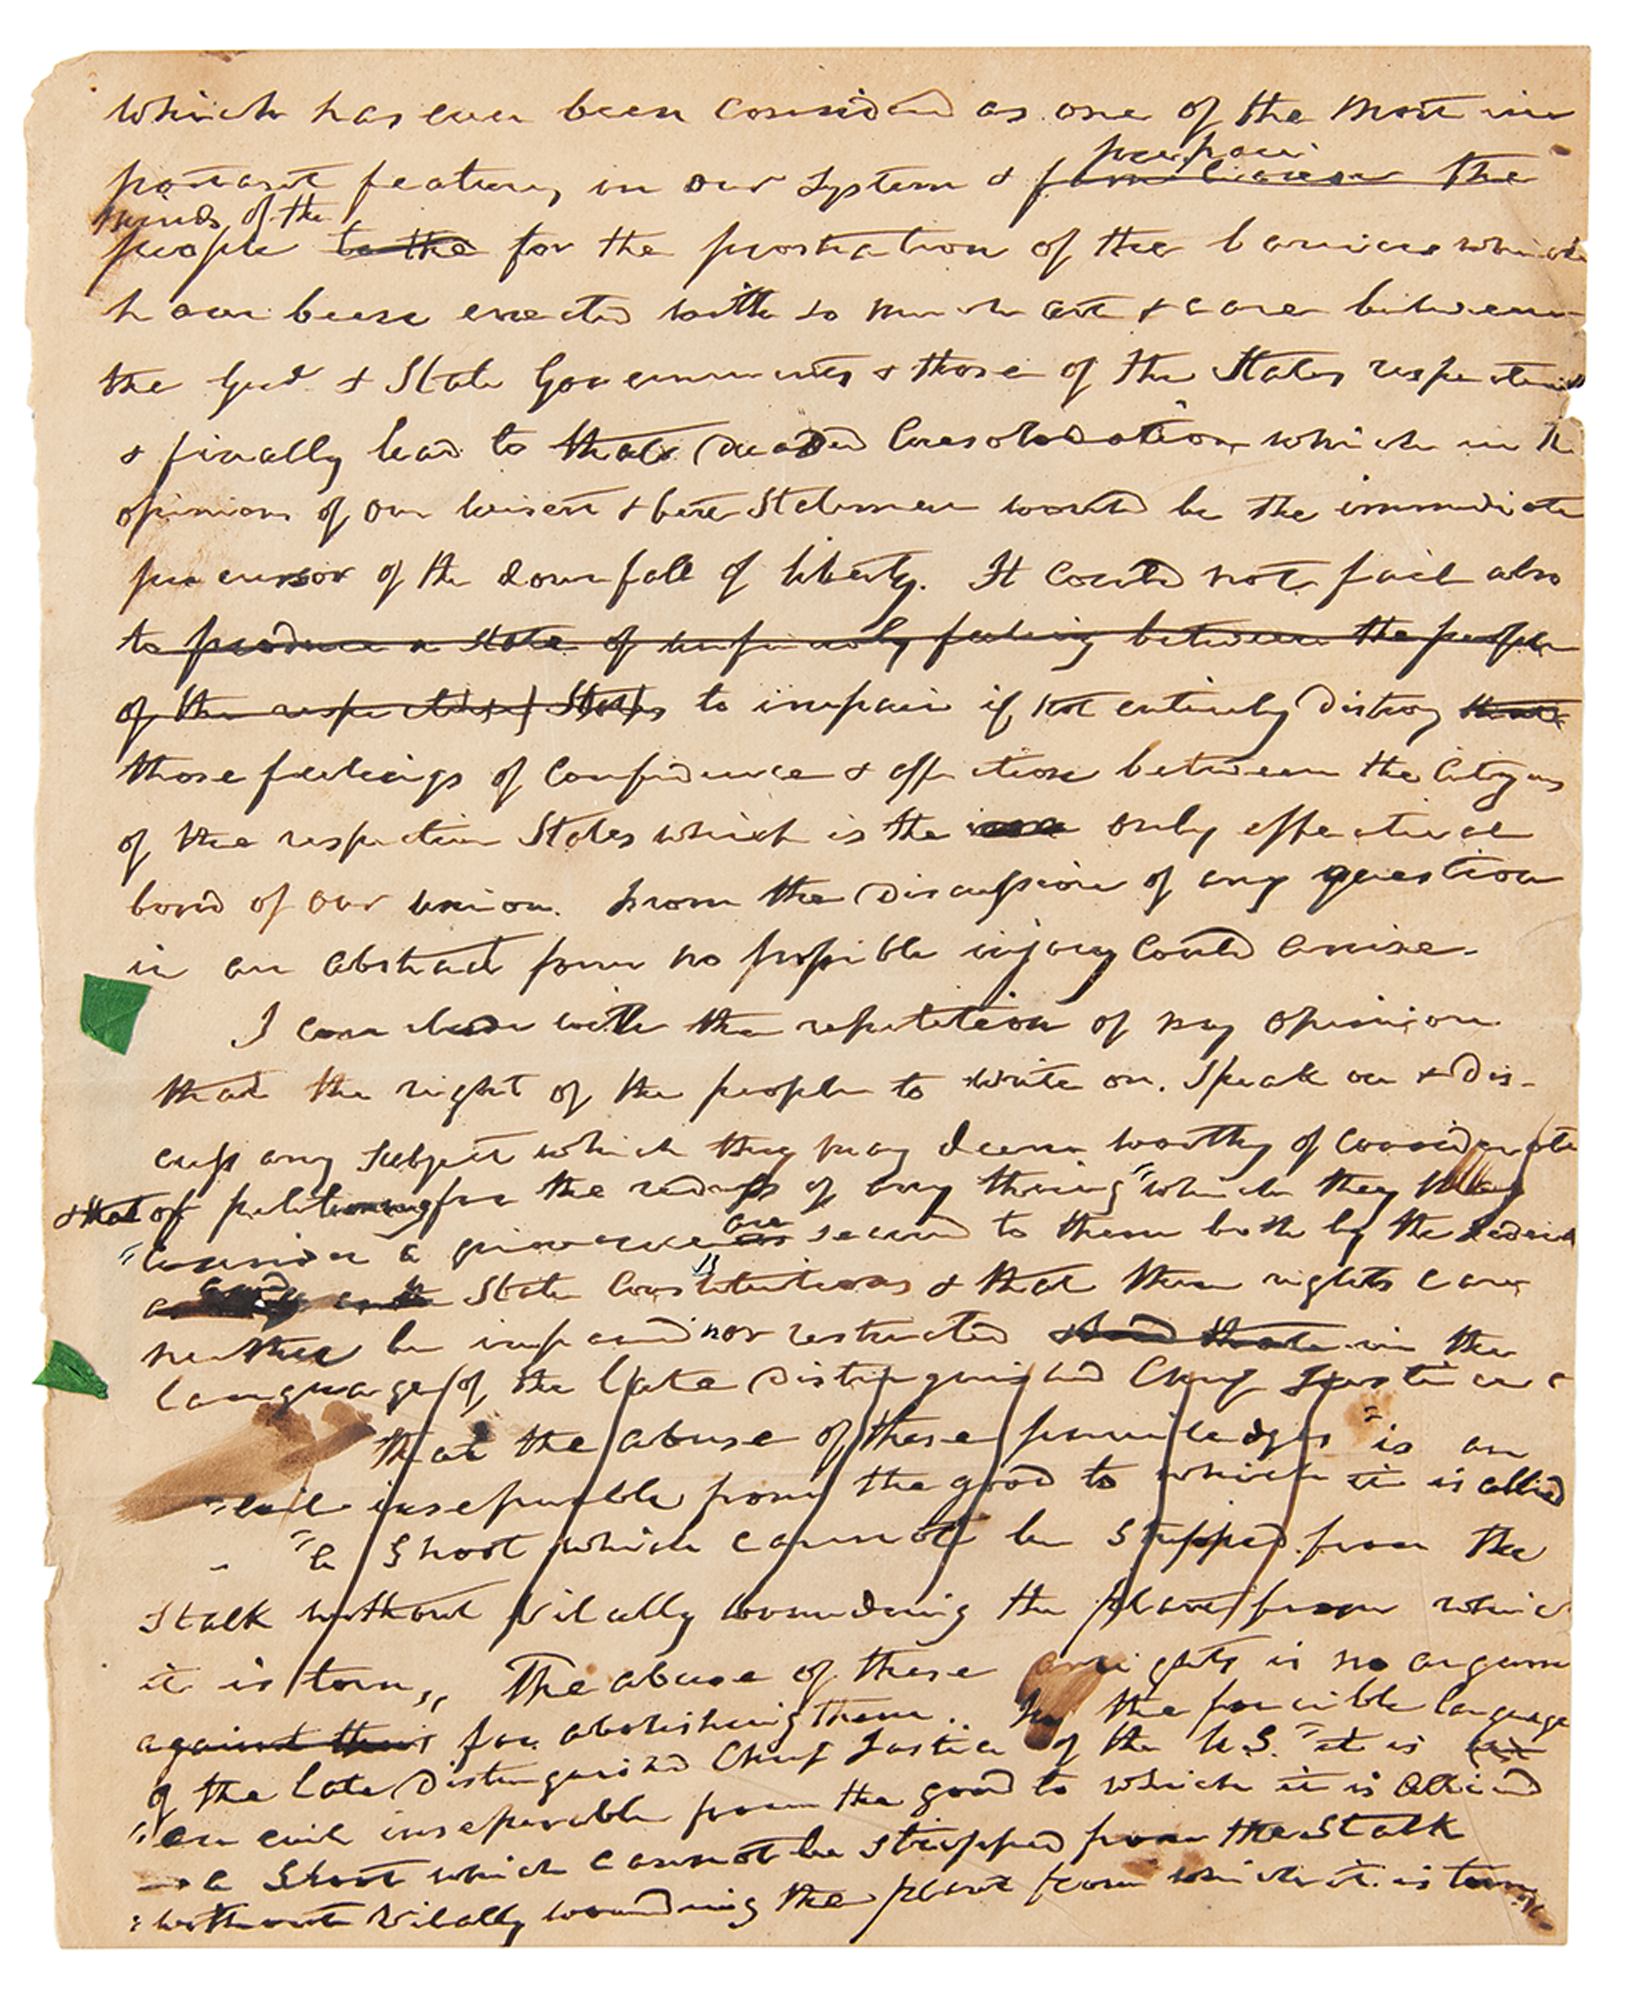 which has ever been considered as one of the most im
prepare
portant features in our system & familiarise the
minds of the
people to the for the prostration of the barriers which
have been erected with so much art & care between
the Genl & State Governments & those of the States respectively
& finally lead to that dreaded Consolodation which in the
opinion of our wisest & best Statesmen would be the immediate
precursor of the downfall of liberty. It could not fail also
to produce a state of unfriendly feeling between the people
of the respective States to impair if not entirely distroy
those feelings of confidence & affection between the Citizens
of the respective States which is the only effectual
bond of our union. From the discussion of any question
in an abstract form no possible injury could arise.
I conclude with the repetition of my opinion
that the right of the people to write on, speak on & dis-
cuss any subject which they may deem worthy of consideration
& that of petitioning for the redress of any thing "which they may
are
"consider a grievance is secured to them both by the Federal
and
State Constitutions & that these rights can
neither be impaired nor restricted and that in the
language of the late distinguished Chief Justice
that the abuse of these priviledges "is an
"evil inseparable from the good to which it is allied
"a shoot which cannot be stripped from the
stalk without vitally wounding the plant from which
it is torn," The abuse of these rights is no argum
against their for abolishing them. In the forcible language
of the late distinguished Chief Justice of the U.S. "it is
"an evil inseparable from the good to which it is allied
a shoot which cannot be stripped from the stalk
without vitally wounding the plant from which it is torn"